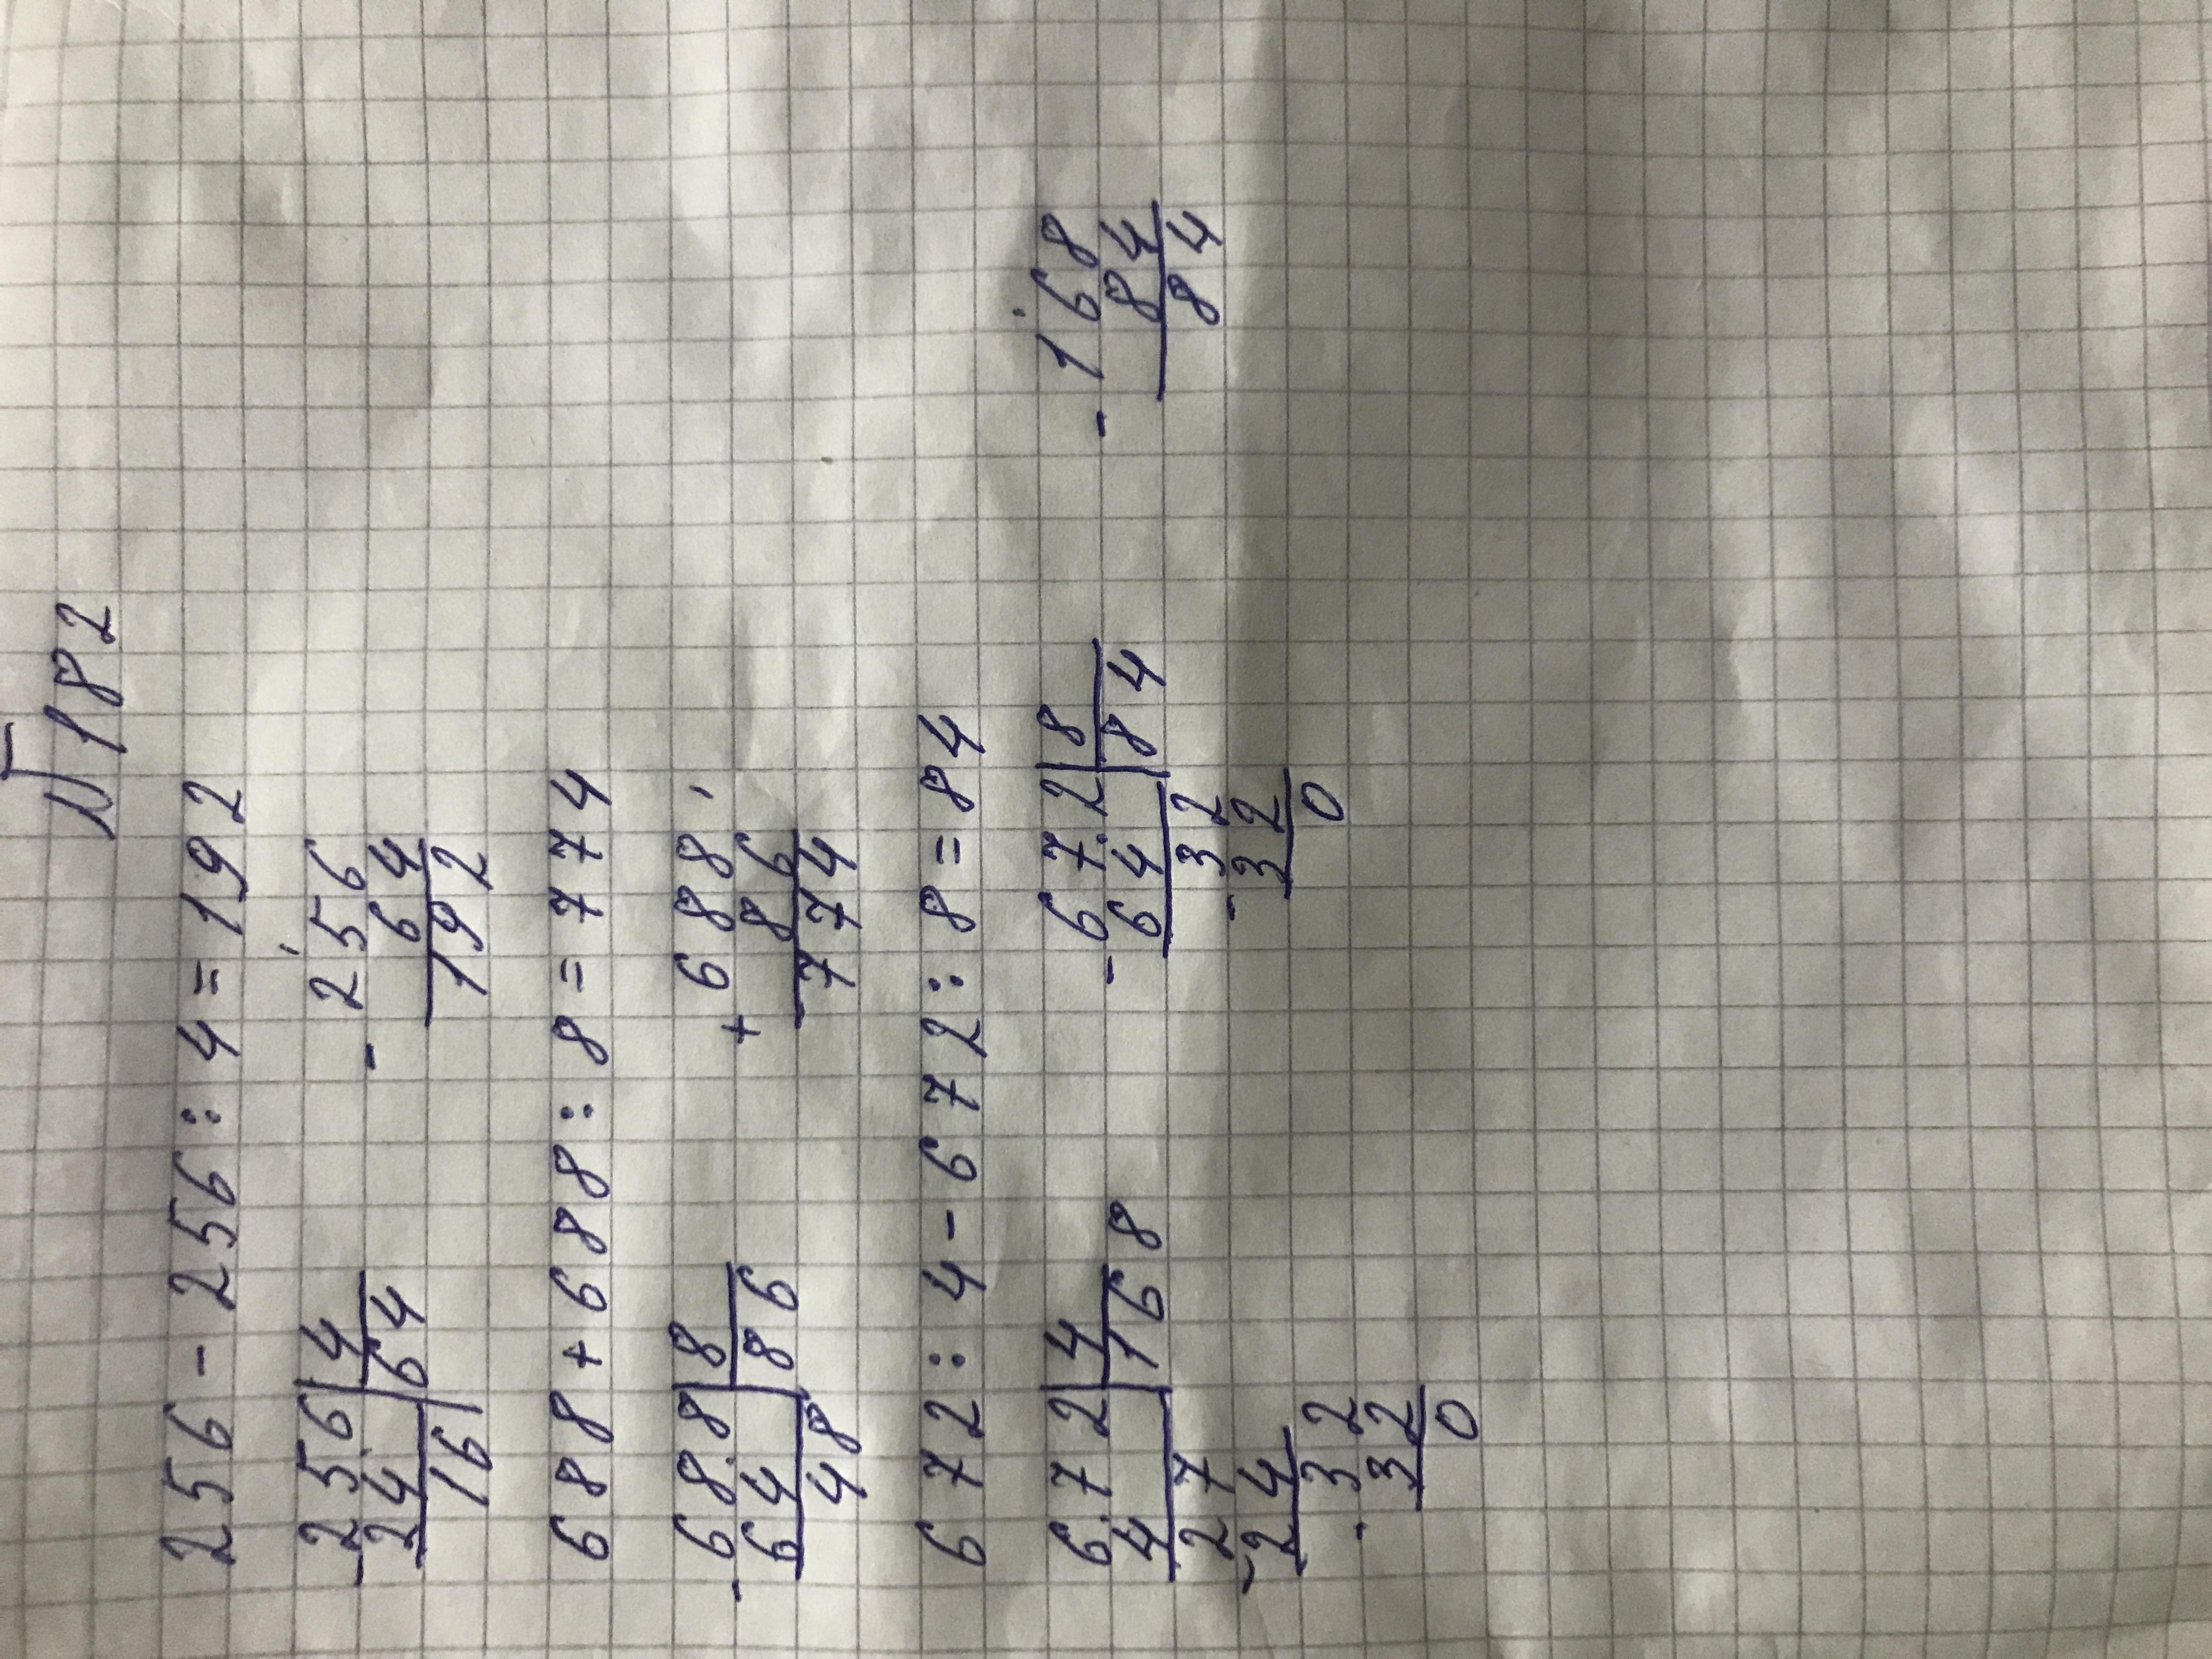 №182
256 - 256 : 4 = 192
-256|4   - 256
24 |64   64
16   192
688 + 688 : 8 = 774
-688|8   + 688
64 |86   86
48   774
672 : 4 - 672 : 8 = 84
672|4   -672|8   -168
4 |168   64 |84   84
27   32   84
-24   -32
32   0
-32
0